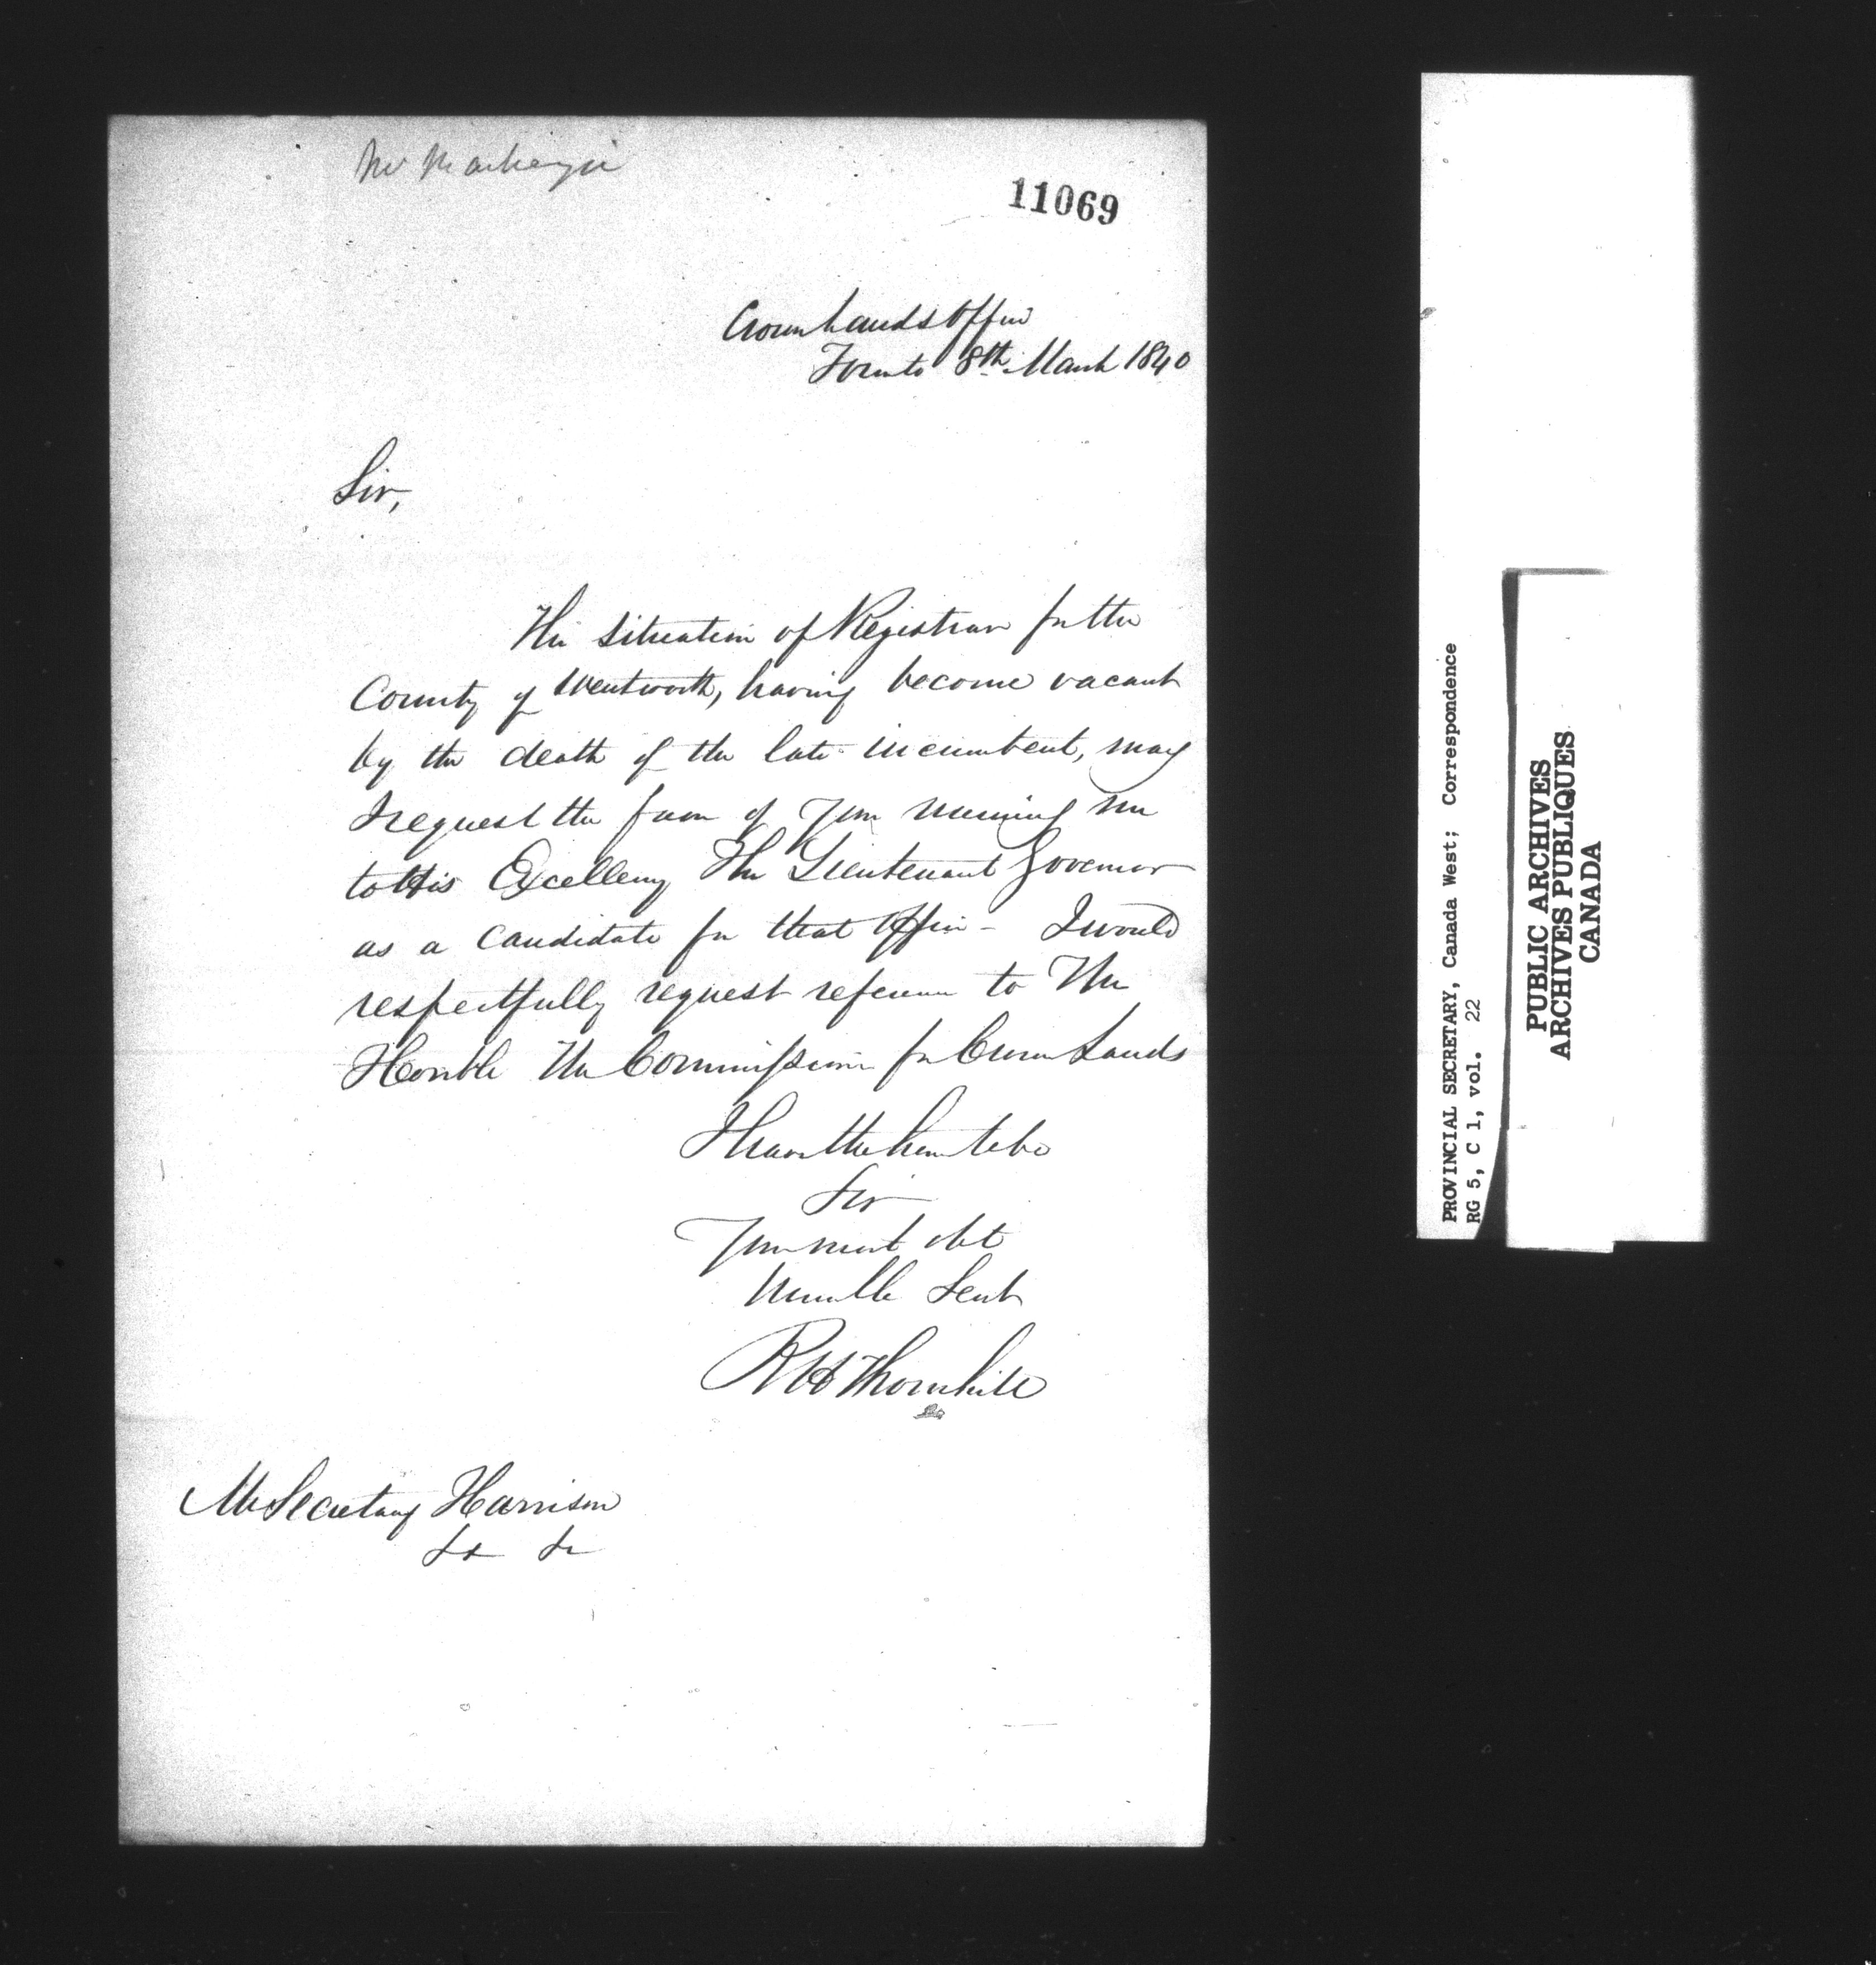 Mr Mackenzie
11069
Crown Lands Office
Toronto 8th March 1840
Sir,
The situation of Registrar for the
County of Wentworth, having become vacant
by the death of the late incumbent, may
I request the favor of your naming me
to His Excellency The Lieutenant Governor
as a candidate for that Office - I would
respectfully request reference to The
Honble The Commissioner for Crown Lands
I have the honor to be
Sir
Your most obt
Humble Servt
R H Thornhill
Mr Secretary Harrison
&c &c
PROVINCIAL SECRETARY, Canada West; Correspondence
RG 5, C 1, vol. 22
PUBLIC ARCHIVES
ARCHIVES PUBLIQUES
CANADA